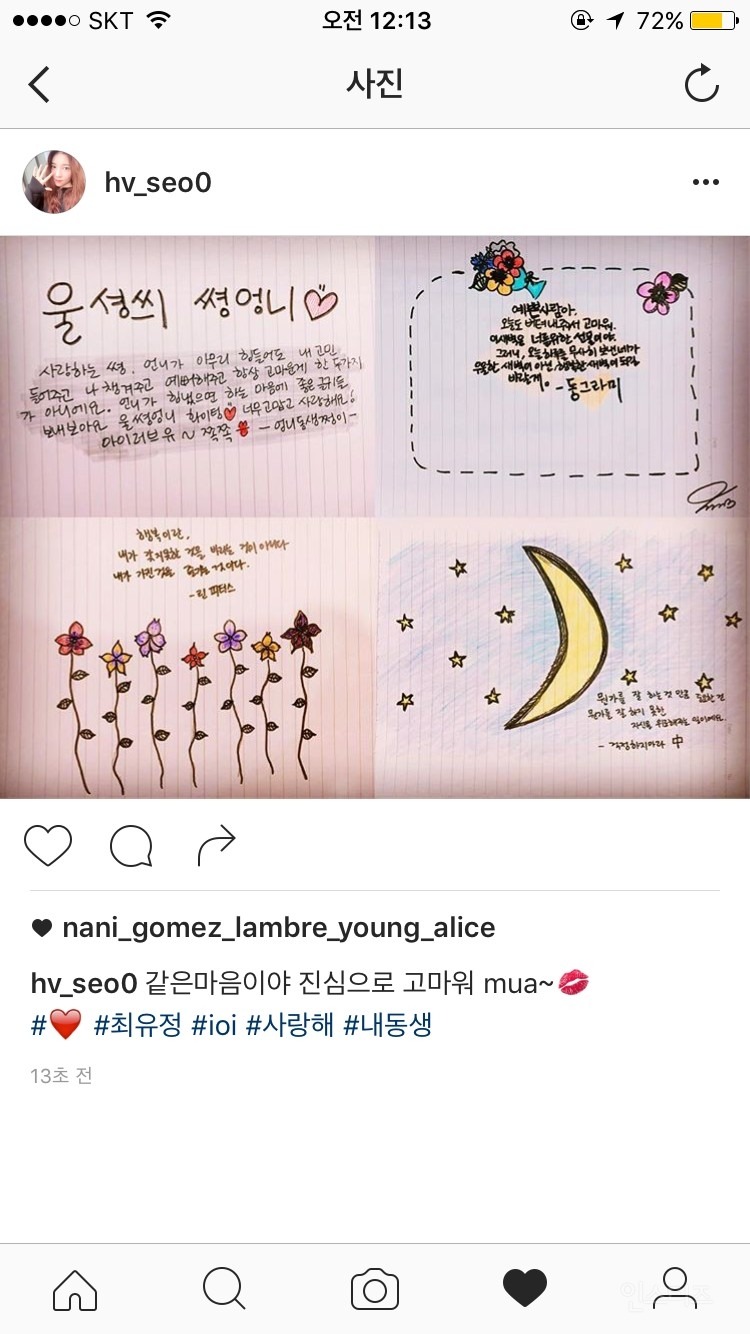 SKT 오전 12:13 72%
사진
hv_seo0
울 셩씌 쎵엉니
사랑하는 쎵. 언니가 아무리 힘들어도 내 고민
들어주고 나 챙겨주고 예뻐해주고 항상 고마운게 한 두가지
가 아니에요. 언니가 힘냈으면 하는 마음에 좋은 글귀들
보내보아요 울쎵엉니 화이팅 너무고맙고 사랑해요!
아이러브유 ~ 쪽쪽 - 언니동생쩡이 -
예쁜사람아,
오늘도 버텨내주서 고마워.
이새벽은 너를위한 선물이야.
그러니, 오늘하루를 무사히 보낸네가
우울한 새벽이 아닌, 행복한 새벽이 되길
바랄게. - 동그라미
행복이란,
내가 갖지못한 것을 바라는 것이 아니라
내가 가진것을 즐기는 것이다.
- 린 피터스
뭔가를 잘 하는것 만큼 중요한 건
뭔가를 잘 하지 못한
자신을 위로해주는 일이에요.
- 걱정하지마라 中
nani_gomez_lambre_young_alice
hv_seo0 같은마음이야 진심으로 고마워 mua~💋
#❤️ #최유정 #ioi #사랑해 #내동생
13초 전
인스티즈